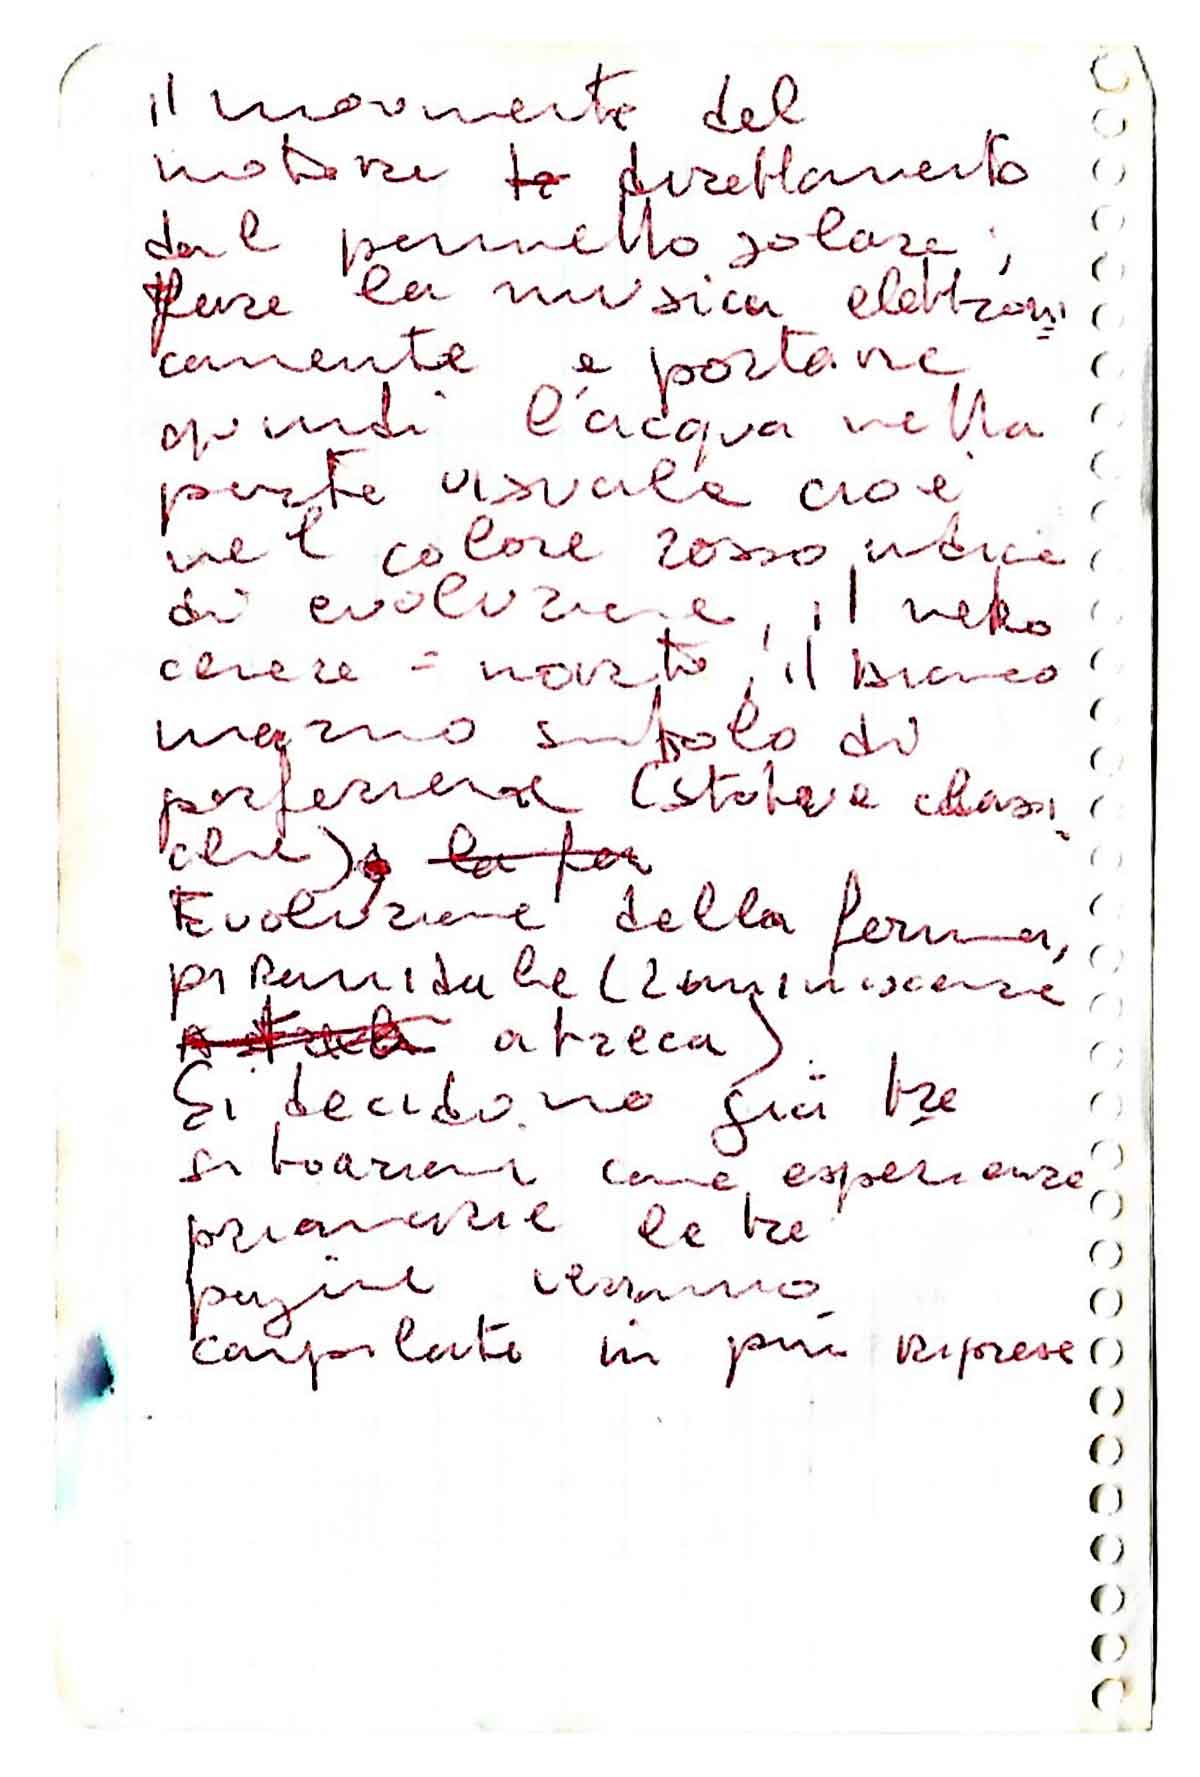 il movimento del
motore direttamente
dal pannello solare;
fare la musica elettroni
camente e portare
quindi l'acqua nella
parte visuale cioè
nel colore rosso indice
di evoluzione, il nero
cenere = morto, il bianco
marmo simbolo di
perfezione (statue classi
che)
Evoluzione della forma,
piramidale (reminiscenze
azteca)
Si decidono già tre
situazioni come esperienze
primarie le tre
pagine verranno
compilate in più riprese